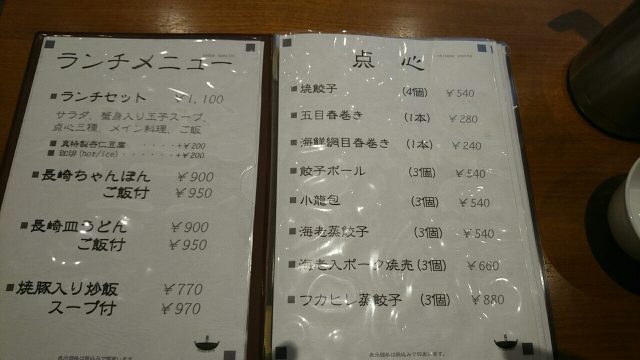 ランチメニュー
■ランチセット ￥1,100
サラダ、蟹身入り玉子スープ、
点心三種、メイン料理、ご飯
■真特製杏仁豆腐 ・・・・・+￥200
■珈琲(hot/ice) ・・・・・+￥200
■長崎ちゃんぽん ￥900
ご飯付 ￥950
■長崎皿うどん ￥900
ご飯付 ￥950
■焼豚入り炒飯 ￥770
スープ付 ￥970
表示価格は税込みで御座います。
点心
■焼餃子 (4個) ￥540
■五目春巻き (1本) ￥280
■海鮮網目春巻き (1本) ￥240
■餃子ボール (3個) ￥540
■小龍包 (3個) ￥540
■海老蒸餃子 (3個) ￥540
■海老入ポーク焼売(3個) ￥660
■フカヒレ蒸餃子 (3個) ￥880
表示価格は税込みで御座います。